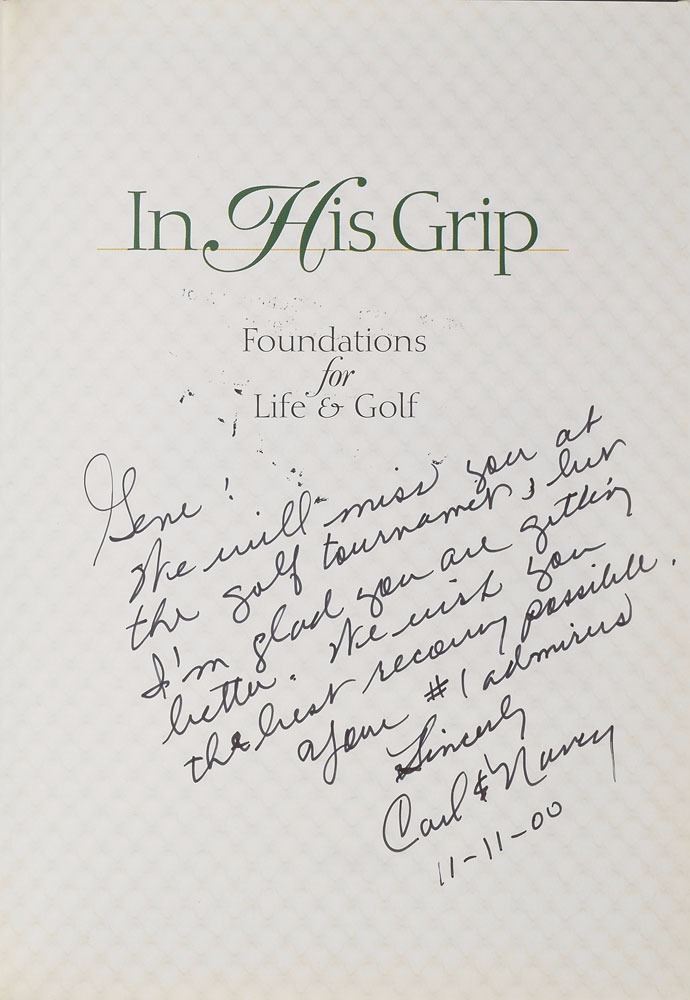 In His Grip
Foundations
for
Life & Golf
Gene!
We will miss you at
the golf tournament, but
I'm glad you are getting
better. We wish you
the best recovery possible.
Your #1 admirers
Sincerly
Carl & Nancy
11-11-00